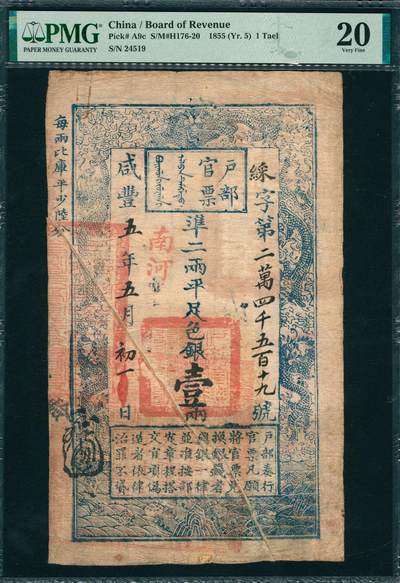 PMG
PAPER MONEY GUARANTY
China / Board of Revenue
Pick# A9c S/M#H176-20 1855 (Yr. 5) 1 Tael
S/N 24519
20
Very Fine
戶部
官票
字第二萬四千五百十九號
準二兩平足色銀壹兩
南河
咸豐五年五月初一日
每兩比庫平少陸分
戶部奏行
官票凡願
將官票兌
換銀錢者
與銀一律
並准按部
定章程搭
交官項偽
造者依律
治罪不貸